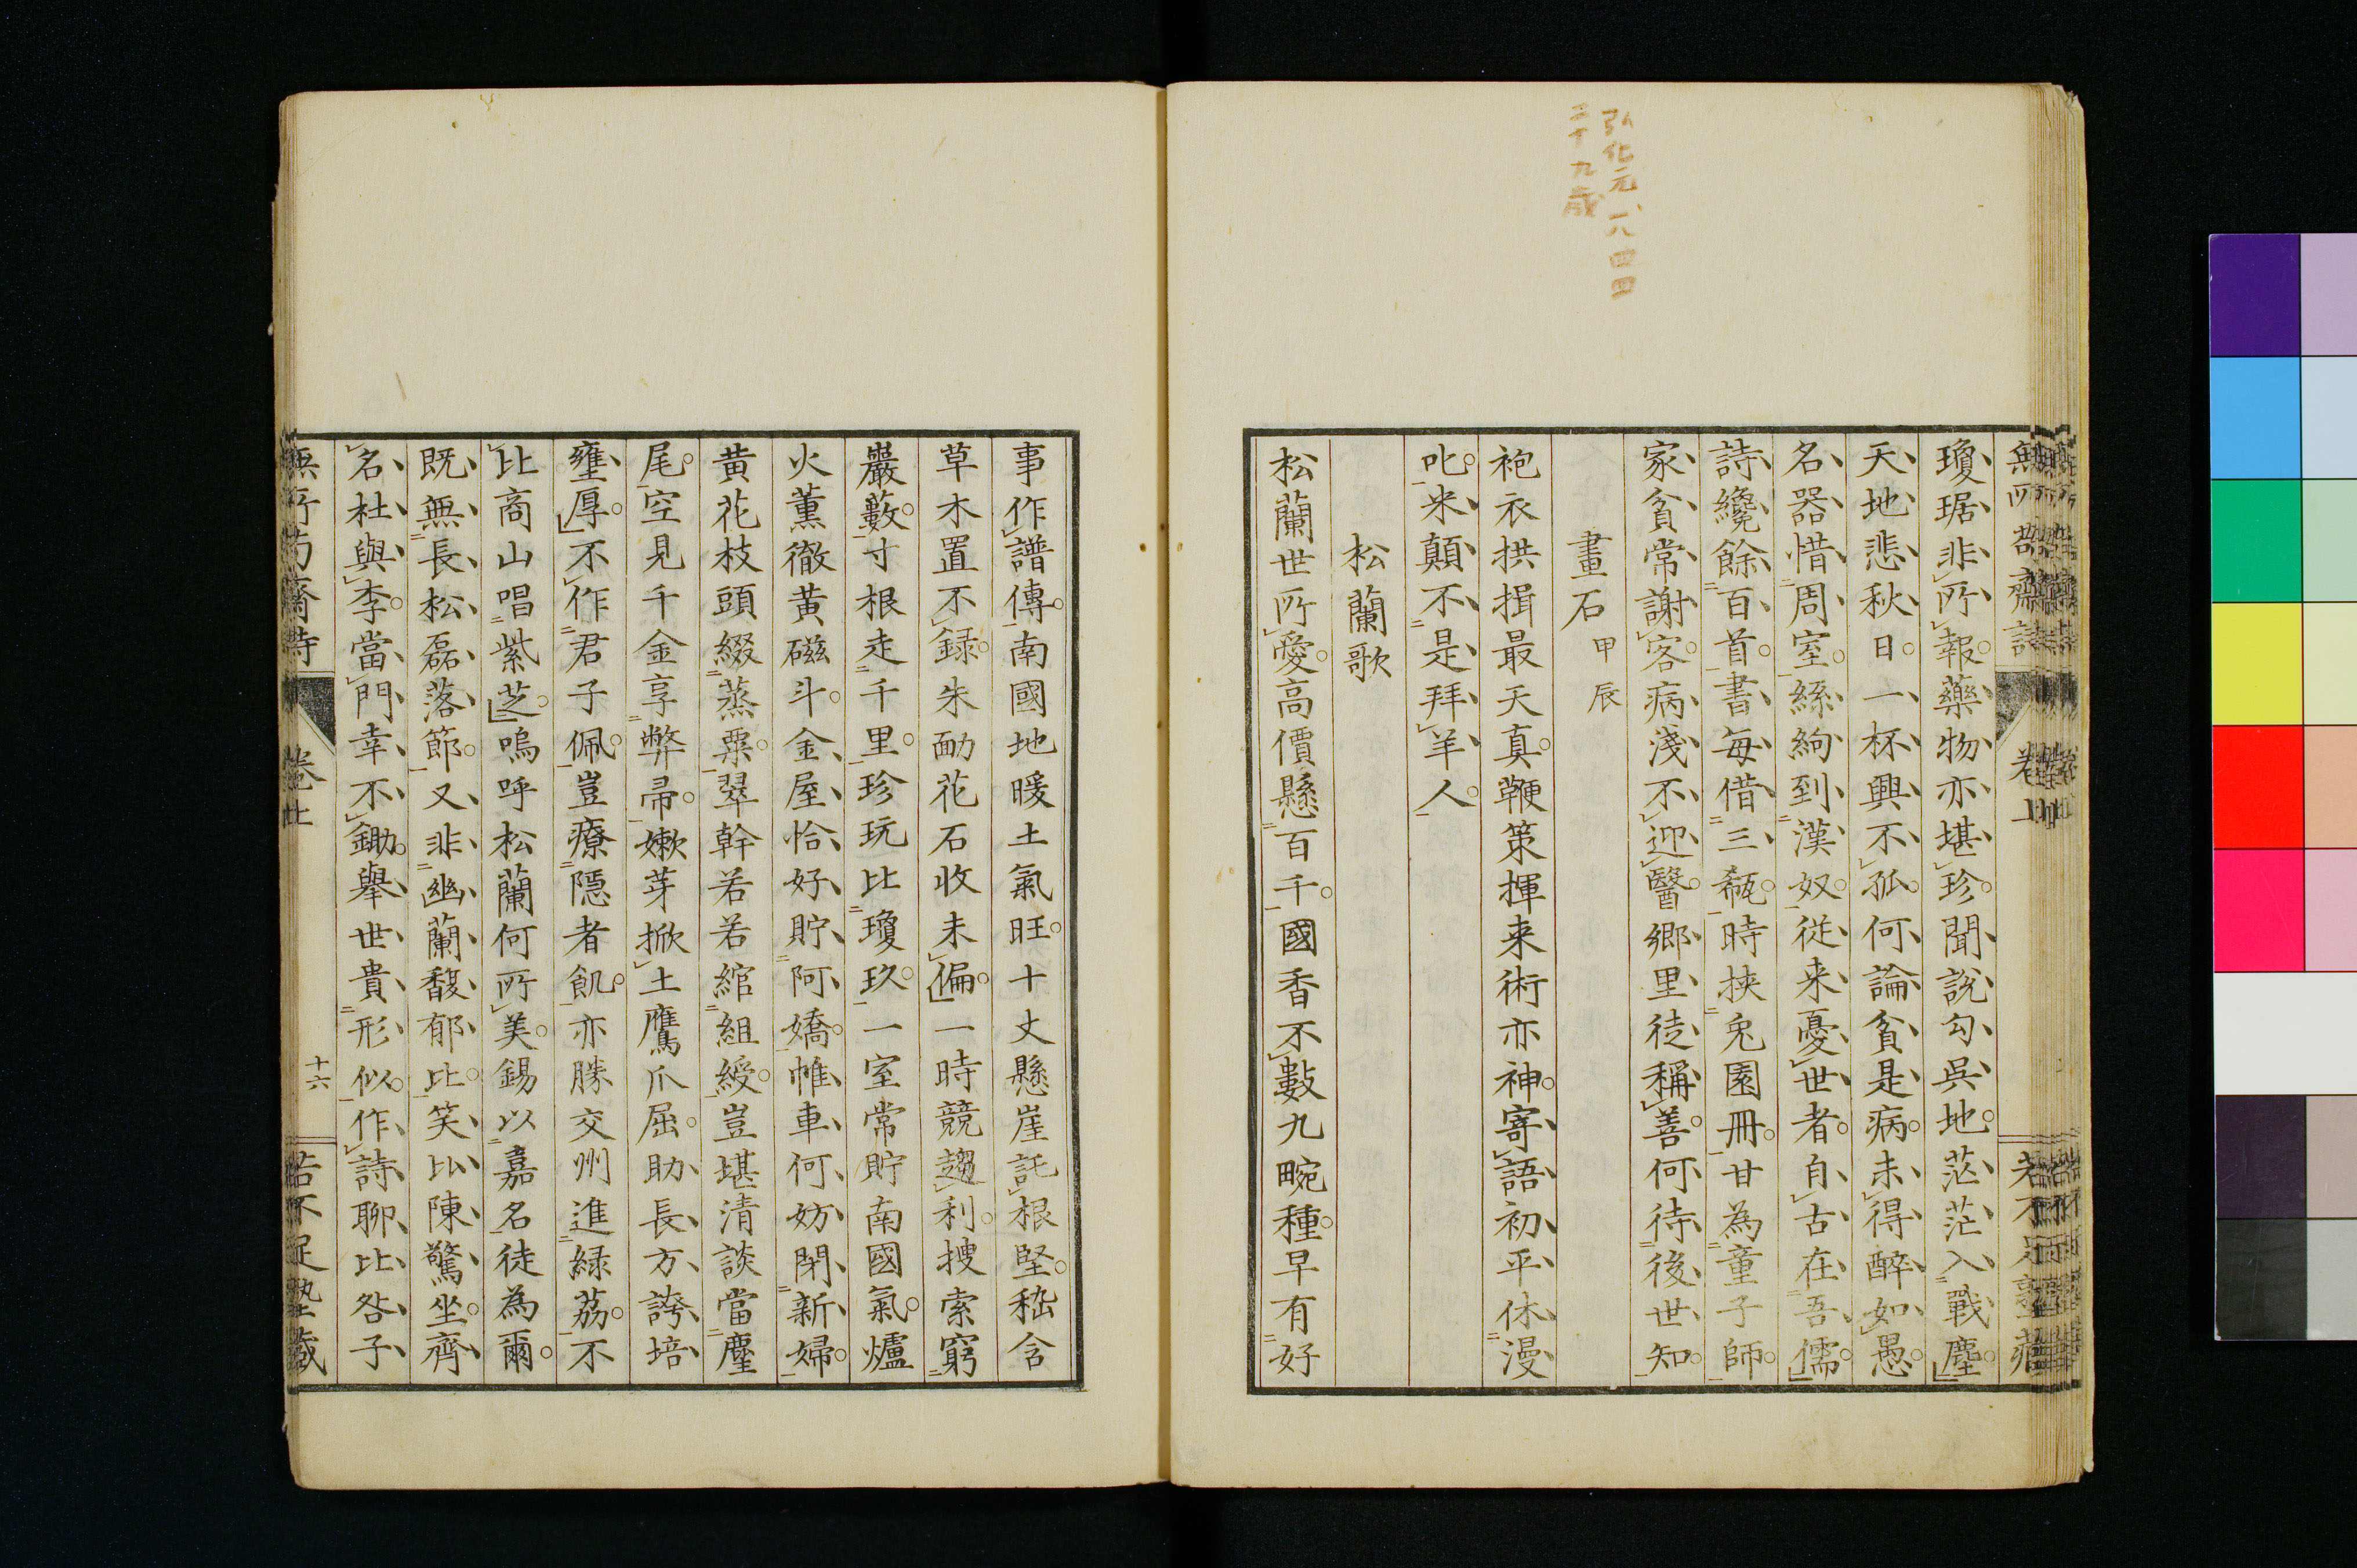 弘化元、一八四四
二十九歳
瓊琚非所報藥物亦堪珍聞說勾吳地茫茫入戰塵
天地悲秋日一杯興不孤何論貧是病未得醉如愚
名器惜周室絲絇到漢奴從来憂世者自古在吾儒
詩纔餘百首書每借三瓻時挾兎園冊甘為童子師
家貧常謝客病淺不迎醫鄉里徒稱善何待後世知
畫石甲辰
袍衣拱揖最天真鞭策揮来術亦神寄語初平休漫
叱米顛不是拜羊人
松蘭歌
松蘭世所愛高價懸百千國香不數九畹種早有好
事作譜傳南國地暖土氣旺十丈懸崖託根堅嵇含
草木置不録朱勔花石收未偏一時競趨利搜索窮
巖藪寸根走千里珍玩比瓊玖一室常貯南國氣爐
火薰徹黃磁斗金屋恰好貯阿嬌帷車何妨閉新婦
黄花枝頭綴蒸粟翠幹若若綰組綬豈堪清談當麈
尾空見千金享弊帚嫰芽掀土鷹爪屈助長方誇培
壅厚不作君子佩豈療隱者飢亦勝交州進緑荔不
比商山唱紫芝嗚呼松蘭何所美錫以嘉名徒為爾
既無長松磊落節又非幽蘭馥郁比笑比陳驚坐齊
名杜與李當門幸不鋤舉世貴形似作詩聊比咎子
無所苟齋詩
卷上
十六
若不足塾藏